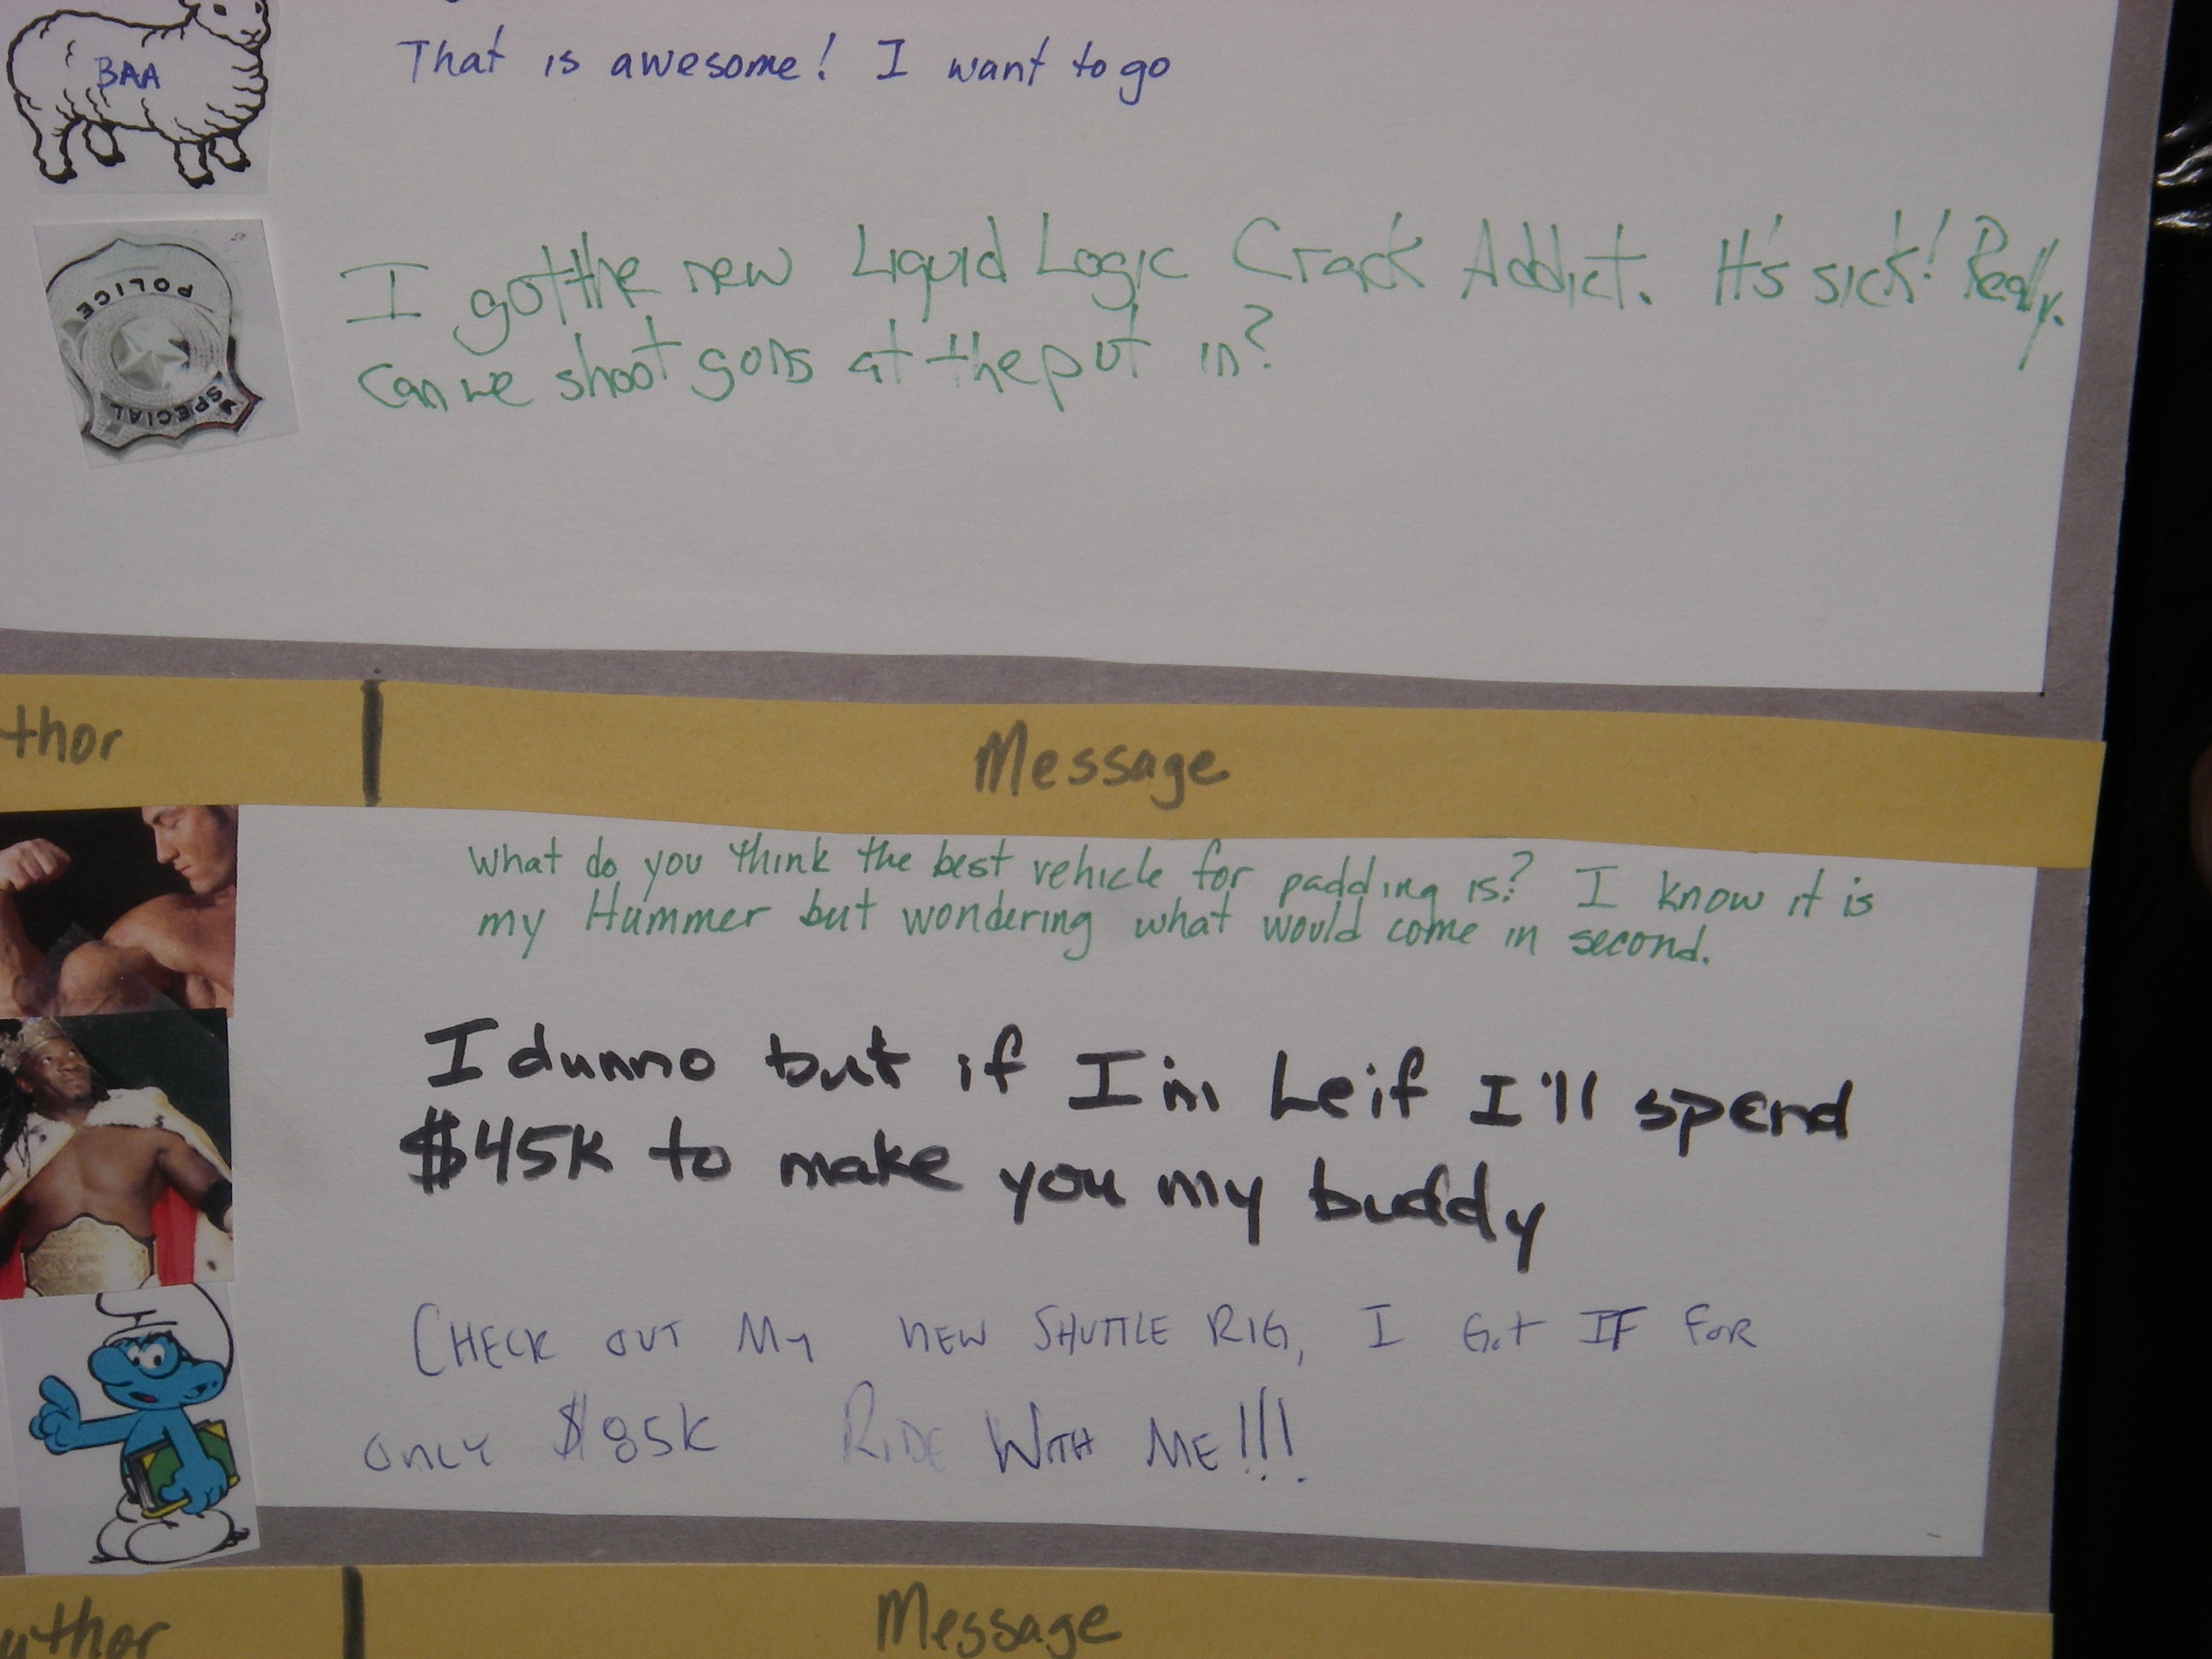 BAA
That is awesome! I want to go
POLICE
SPECIAL
I got the new Liquid Logic Crack Addict. It's sick! Really.
Can we shoot guns at the put in?
thor
Message
What do you think the best vehicle for padding is? I know it is
my Hummer but wondering what would come in second.
I dunno but if I'm Leif I'll spend
$45K to make you my buddy
CHECK OUT My NEW SHUTTLE RIG, I Got IF FOR
ONLY $85K RIDE WITH ME!!!
uthor
Message